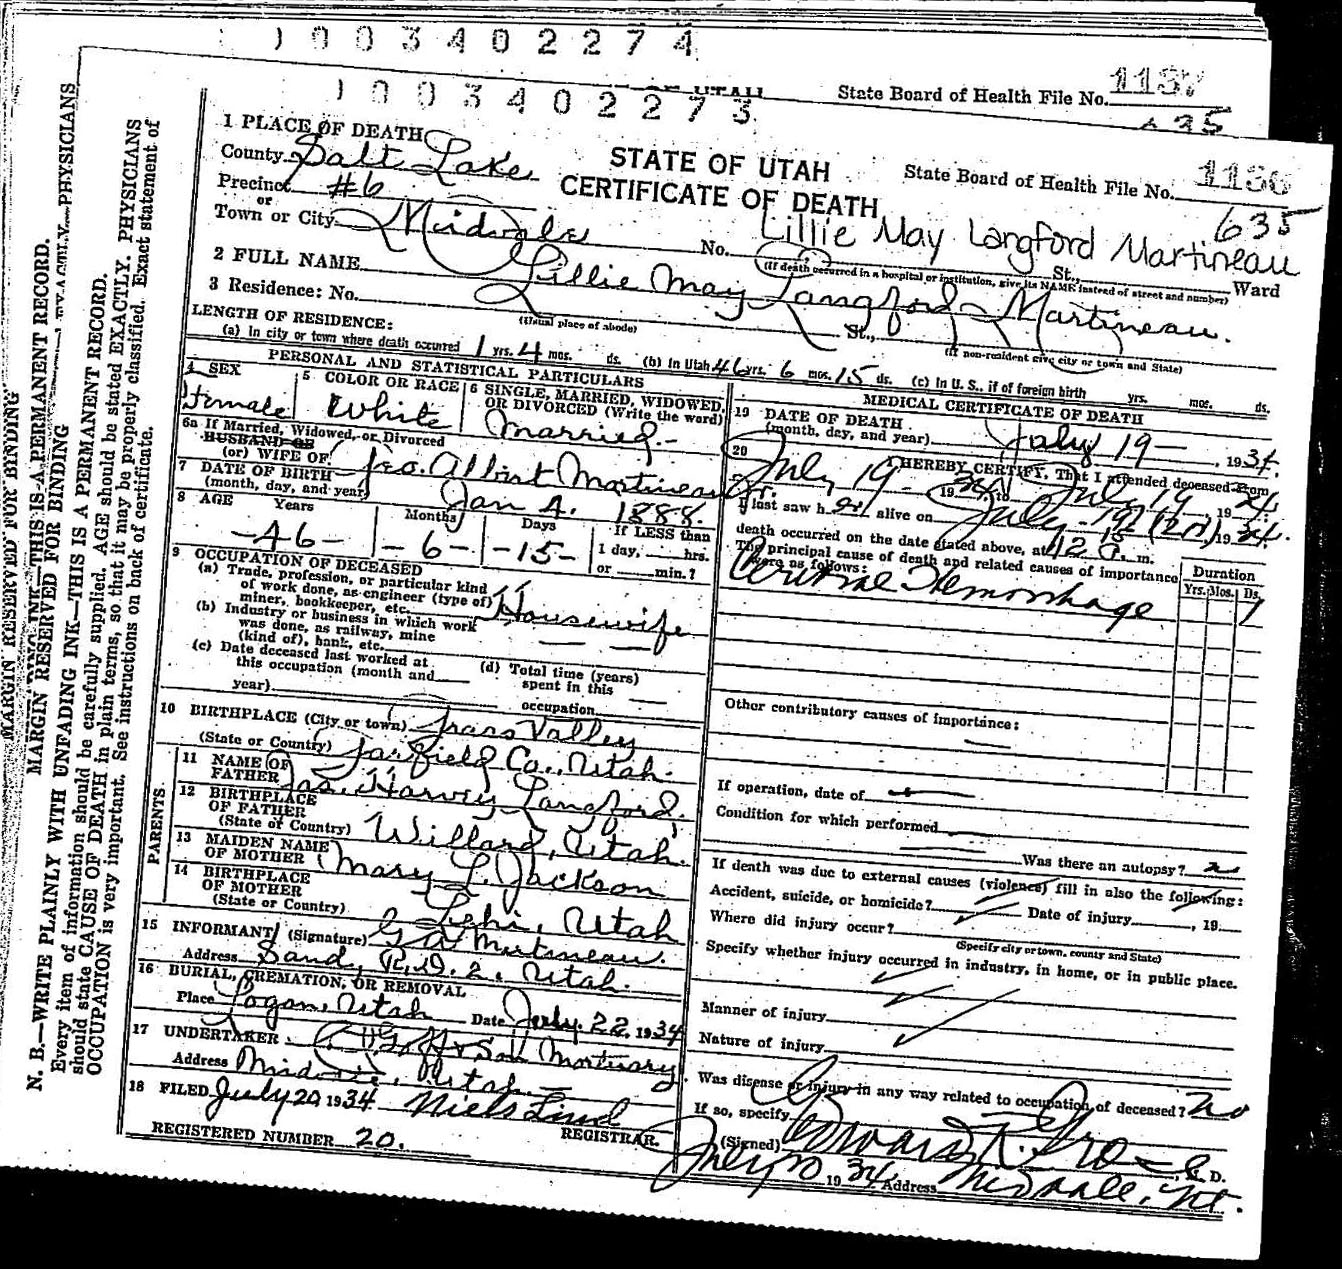 ) 0 0 3 4 0 2 2 7 4
State Board of Health File No. 1137
) 0 0 3 4 0 2 2 7 3
OF UTAH
STATE OF UTAH
CERTIFICATE OF DEATH
State Board of Health File No. 1136
635
1 PLACE OF DEATH
County Salt Lake
Precinct #6
or
Town or City Midvale No. St., Ward
Lillie May Langford Martineau
(If death occurred in a hospital or institution, give its NAME instead of street and number)
2 FULL NAME Lillie May Langford Martineau.
3 Residence: No. St.,
(Usual place of abode)
(If non-resident give city or town and State)
LENGTH OF RESIDENCE:
(a) In city or town where death occurred 1 yrs. 4 mos. ds. (b) In Utah 46 yrs. 6 mos. 15 ds. (c) In U. S., if of foreign birth yrs. mos. ds.
PERSONAL AND STATISTICAL PARTICULARS
4 SEX Female
5 COLOR OR RACE White
6 SINGLE, MARRIED, WIDOWED, OR DIVORCED (Write the word) Married.
6a If Married, Widowed, or Divorced
HUSBAND OF
(or) WIFE OF Geo. Albert Martineau
7 DATE OF BIRTH
(month, day, and year) Jan 4. 1888.
8 AGE Years Months Days If LESS than
-46- -6- -15- 1 day, hrs.
or min.?
9 OCCUPATION OF DECEASED
(a) Trade, profession, or particular kind
of work done, as engineer (type of)
miner, bookkeeper, etc. Housewife
(b) Industry or business in which work
was done, as railway, mine
(kind of), bank, etc.
(c) Date deceased last worked at
this occupation (month and
year)
(d) Total time (years)
spent in this
occupation
10 BIRTHPLACE (City or town) Grass Valley
(State or Country) Garfield Co., Utah.
PARENTS
11 NAME OF
FATHER Jas. Harvey Langford.
12 BIRTHPLACE
OF FATHER
(State or Country) Willard, Utah.
13 MAIDEN NAME
OF MOTHER Mary L. Jackson
14 BIRTHPLACE
OF MOTHER
(State or Country) Lehi, Utah
15 INFORMANT (Signature) G A Martineau.
Address Sandy R.D. 2, Utah.
16 BURIAL, CREMATION, OR REMOVAL
Place Logan, Utah Date July 22, 1934
17 UNDERTAKER Goff & Son Mortuary
Address Midvale, Utah
18 FILED July 20 1934 Niels Lind
REGISTRAR.
REGISTERED NUMBER 20.
MEDICAL CERTIFICATE OF DEATH
19 DATE OF DEATH
(month, day, and year) July 19 , 1934.
20 I HEREBY CERTIFY, That I attended deceased from
July 19 1934 to July 19, 1934
I last saw her alive on July 19 1934.
death occurred on the date stated above, at 12 a. m.
The principal cause of death and related causes of importance
were as follows:
Duration
Yrs. Mos. Ds.
Cerebral Hemorrhage 1
Other contributory causes of importance:
If operation, date of
Condition for which performed
Was there an autopsy? no
If death was due to external causes (violence) fill in also the following:
Accident, suicide, or homicide? Date of injury , 19
Where did injury occur?
(Specify city or town, county and State)
Specify whether injury occurred in industry, in home, or in public place.
Manner of injury
Nature of injury
Was disease or injury in any way related to occupation of deceased? No
If so, specify
(Signed) M. D.
July 20 1934 Address Midvale, Ut.
MARGIN RESERVED FOR BINDING
MARGIN RESERVED FOR BINDING
N. B.—WRITE PLAINLY WITH UNFADING INK—THIS IS A PERMANENT RECORD.
Every item of information should be carefully supplied. AGE should be stated EXACTLY. PHYSICIANS
should state CAUSE OF DEATH in plain terms, so that it may be properly classified. Exact statement of
OCCUPATION is very important. See instructions on back of certificate.